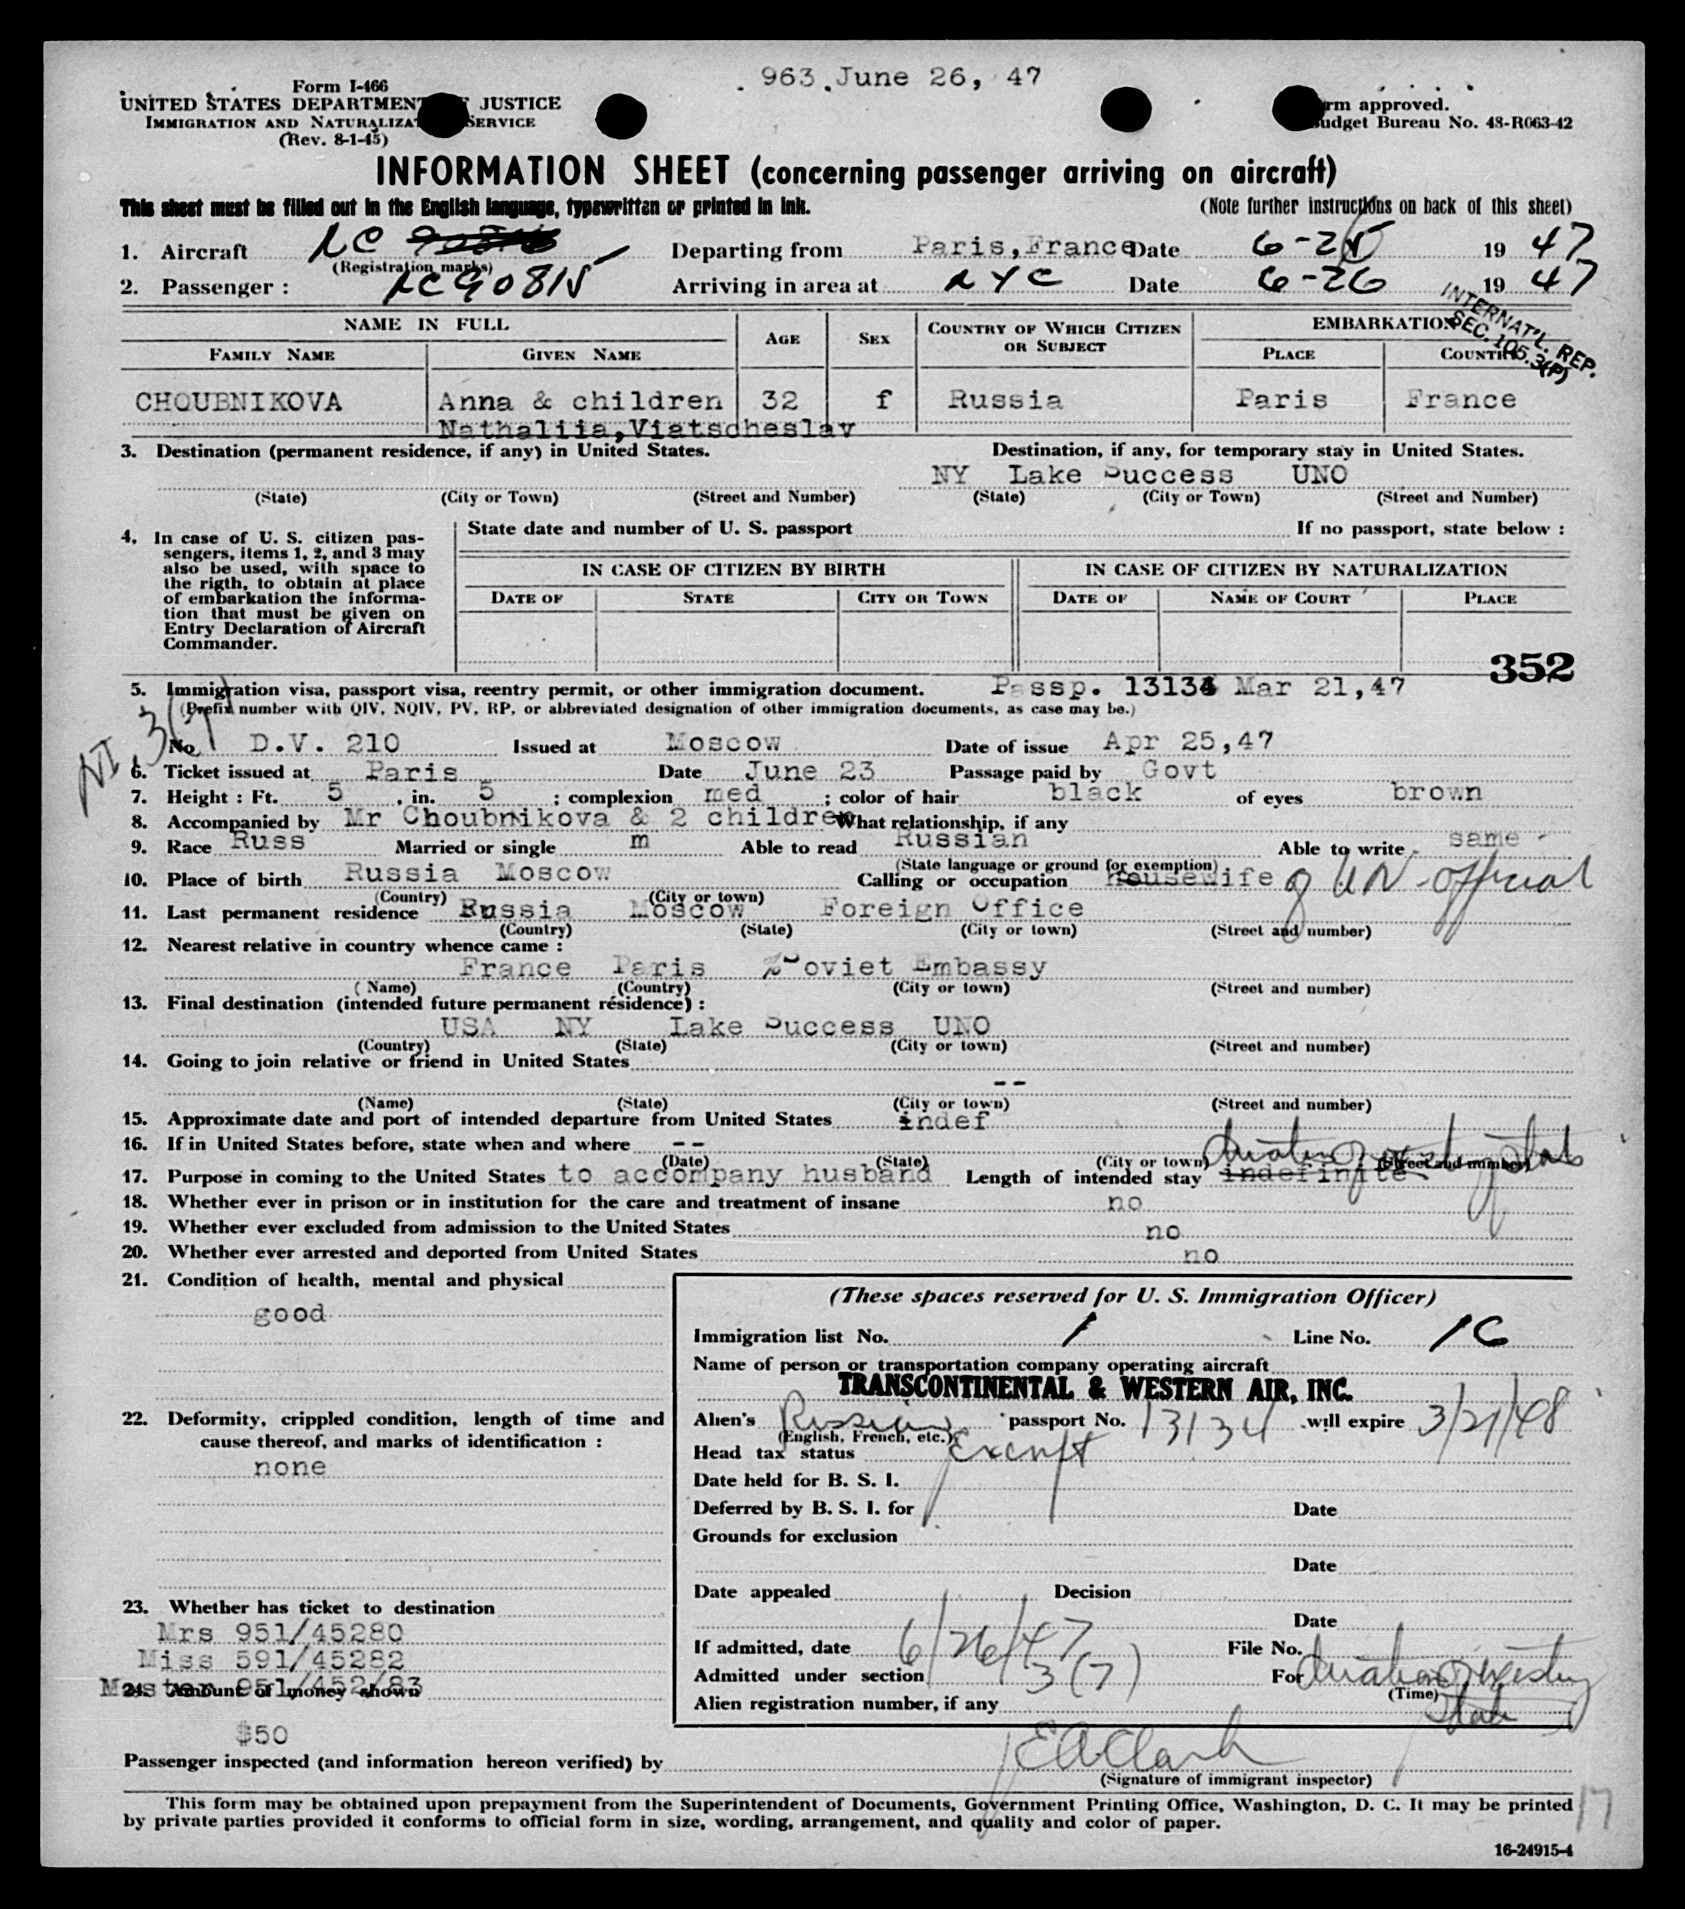 963 June 26, 47
Form I-466
UNITED STATES DEPARTMENT JUSTICE
IMMIGRATION AND NATURALIZAT SERVICE
(Rev. 8-1-45)
rm approved.
udget Bureau No. 43-R063-42
INFORMATION SHEET (concerning passenger arriving on aircraft)
This sheet must be filled out in the English language, typewritten or printed in ink.
(Note further instructions on back of this sheet)
1. Aircraft NC Departing from Paris, France Date 6-25 19 47
(Registration marks)
2. Passenger : NC90815 Arriving in area at NYC Date 6-26 19 47
INTERNAT'L. REP.
SEC. 105.3(P)
NAME IN FULL AGE SEX COUNTRY OF WHICH CITIZEN OR SUBJECT EMBARKATION
FAMILY NAME GIVEN NAME PLACE COUNTR
CHOUBNIKOVA Anna & children 32 f Russia Paris France
Nathaliia,Viatscheslav
3. Destination (permanent residence, if any) in United States. Destination, if any, for temporary stay in United States.
NY Lake Success UNO
(State) (City or Town) (Street and Number) (State) (City or Town) (Street and Number)
4. In case of U. S. citizen pas-
sengers, items 1, 2, and 3 may
also be used, with space to
the rigth, to obtain at place
of embarkation the informa-
tion that must be given on
Entry Declaration of Aircraft
Commander.
State date and number of U. S. passport If no passport, state below :
IN CASE OF CITIZEN BY BIRTH IN CASE OF CITIZEN BY NATURALIZATION
DATE OF STATE CITY OR TOWN DATE OF NAME OF COURT PLACE
352
5. Immigration visa, passport visa, reentry permit, or other immigration document. Passp. 13134 Mar 21,47
(Prefix number with QIV, NQIV, PV, RP, or abbreviated designation of other immigration documents, as case may be.)
NI 3(7)
No D.V. 210 Issued at Moscow Date of issue Apr 25,47
6. Ticket issued at Paris Date June 23 Passage paid by Govt
7. Height : Ft. 5 , in. 5 ; complexion med ; color of hair black of eyes brown
8. Accompanied by Mr Choubnikova & 2 children What relationship, if any
9. Race Russ Married or single m Able to read Russian Able to write same
(State language or ground for exemption)
10. Place of birth Russia Moscow Calling or occupation housewife of UN-official
(Country) (City or town)
11. Last permanent residence Russia Moscow Foreign Office
(Country) (State) (City or town) (Street and number)
12. Nearest relative in country whence came :
France Paris Soviet Embassy
(Name) (Country) (City or town) (Street and number)
13. Final destination (intended future permanent résidence) :
USA NY Lake Success UNO
(Country) (State) (City or town) (Street and number)
14. Going to join relative or friend in United States
--
(Name) (State) (City or town) (Street and number)
15. Approximate date and port of intended departure from United States indef
16. If in United States before, state when and where --
(Date) (State) (City or town) (Street and number)
17. Purpose in coming to the United States to accompany husband Length of intended stay indefinite
18. Whether ever in prison or in institution for the care and treatment of insane no
19. Whether ever excluded from admission to the United States no
20. Whether ever arrested and deported from United States no
21. Condition of health, mental and physical
good
22. Deformity, crippled condition, length of time and
cause thereof, and marks of identification :
none
23. Whether has ticket to destination
Mrs 951/45280
Miss 591/45282
Master 951/452/83
24. Amount of money shown
$50
(These spaces reserved for U. S. Immigration Officer)
Immigration list No. 1 Line No. 16
Name of person or transportation company operating aircraft
TRANSCONTINENTAL & WESTERN AIR, INC.
Alien's Russian passport No. 13134 will expire 3/21/48
(English, French, etc.)
Head tax status Exempt
Date held for B. S. I.
Deferred by B. S. I. for Date
Grounds for exclusion
Date
Date appealed Decision
Date
If admitted, date 6/26/47 File No.
Admitted under section 3(7) For duration of
(Time)
Alien registration number, if any status
Passenger inspected (and information hereon verified) by E A Clark
(Signature of immigrant inspector)
This form may be obtained upon prepayment from the Superintendent of Documents, Government Printing Office, Washington, D. C. It may be printed
by private parties provided it conforms to official form in size, wording, arrangement, and quality and color of paper.
17
16-24915-4